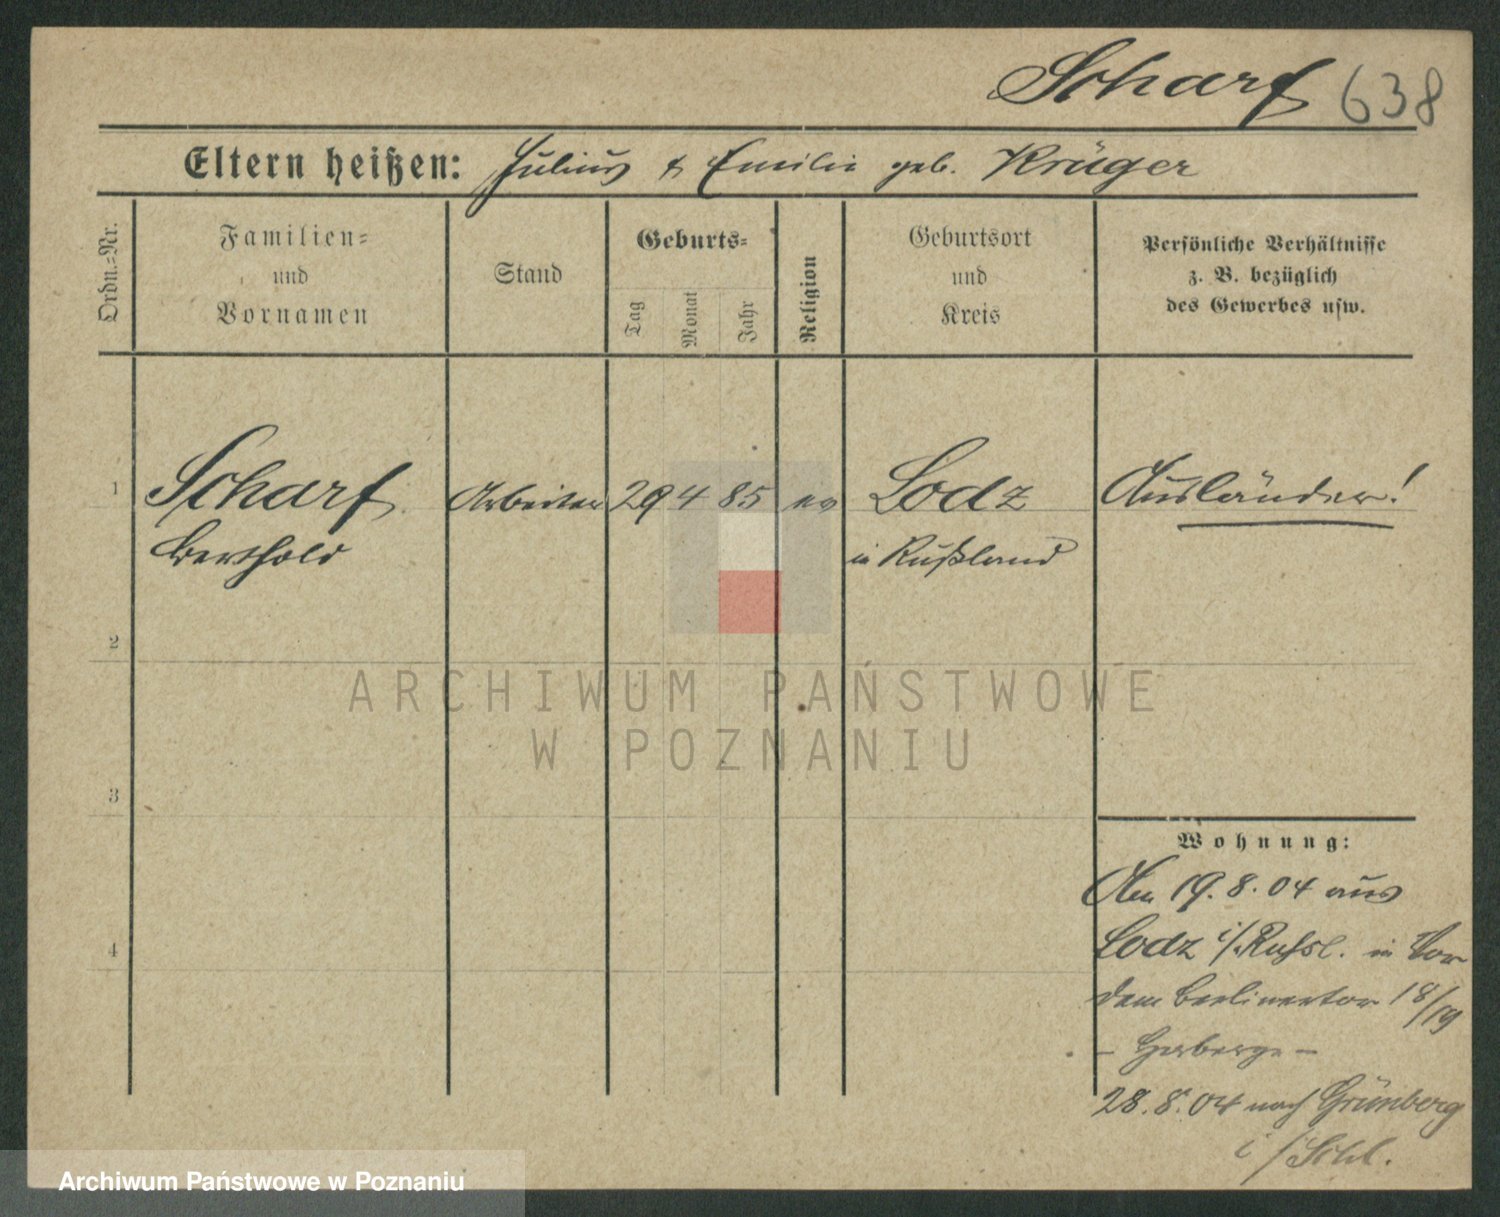 Scharf 638
Eltern heißen: Julius & Emilie geb. Krüger
Ordn.-Nr.
Familien-
und
Vornamen
Stand
Geburts-
Tag
Monat
Jahr
Religion
Geburtsort
und
Kreis
Persönliche Verhältnisse
z. B. bezüglich
des Gewerbes usw.
1 Scharf Arbeiter 29 4 85 ev Lodz Ausländer!
Berthold in Rußland
2
3
4
Wohnung:
Am 19.8.04 aus
Lodz i/Russl. in Vor
dem Berlinertor 18/19
- Herberge -
28.8.04 nach Grünberg
i/Schl.
ARCHIWUM PAŃSTWOWE
W POZNANIU
Archiwum Państwowe w Poznaniu